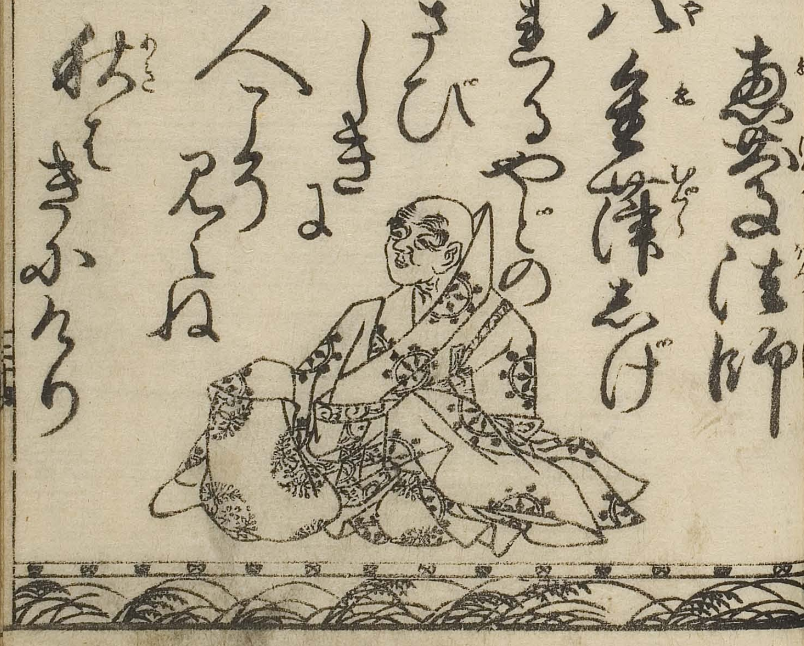 恵慶法師
八重葎しげ
れるやどの
さび
しきに
人こそ
見えね
秋は
きにけり